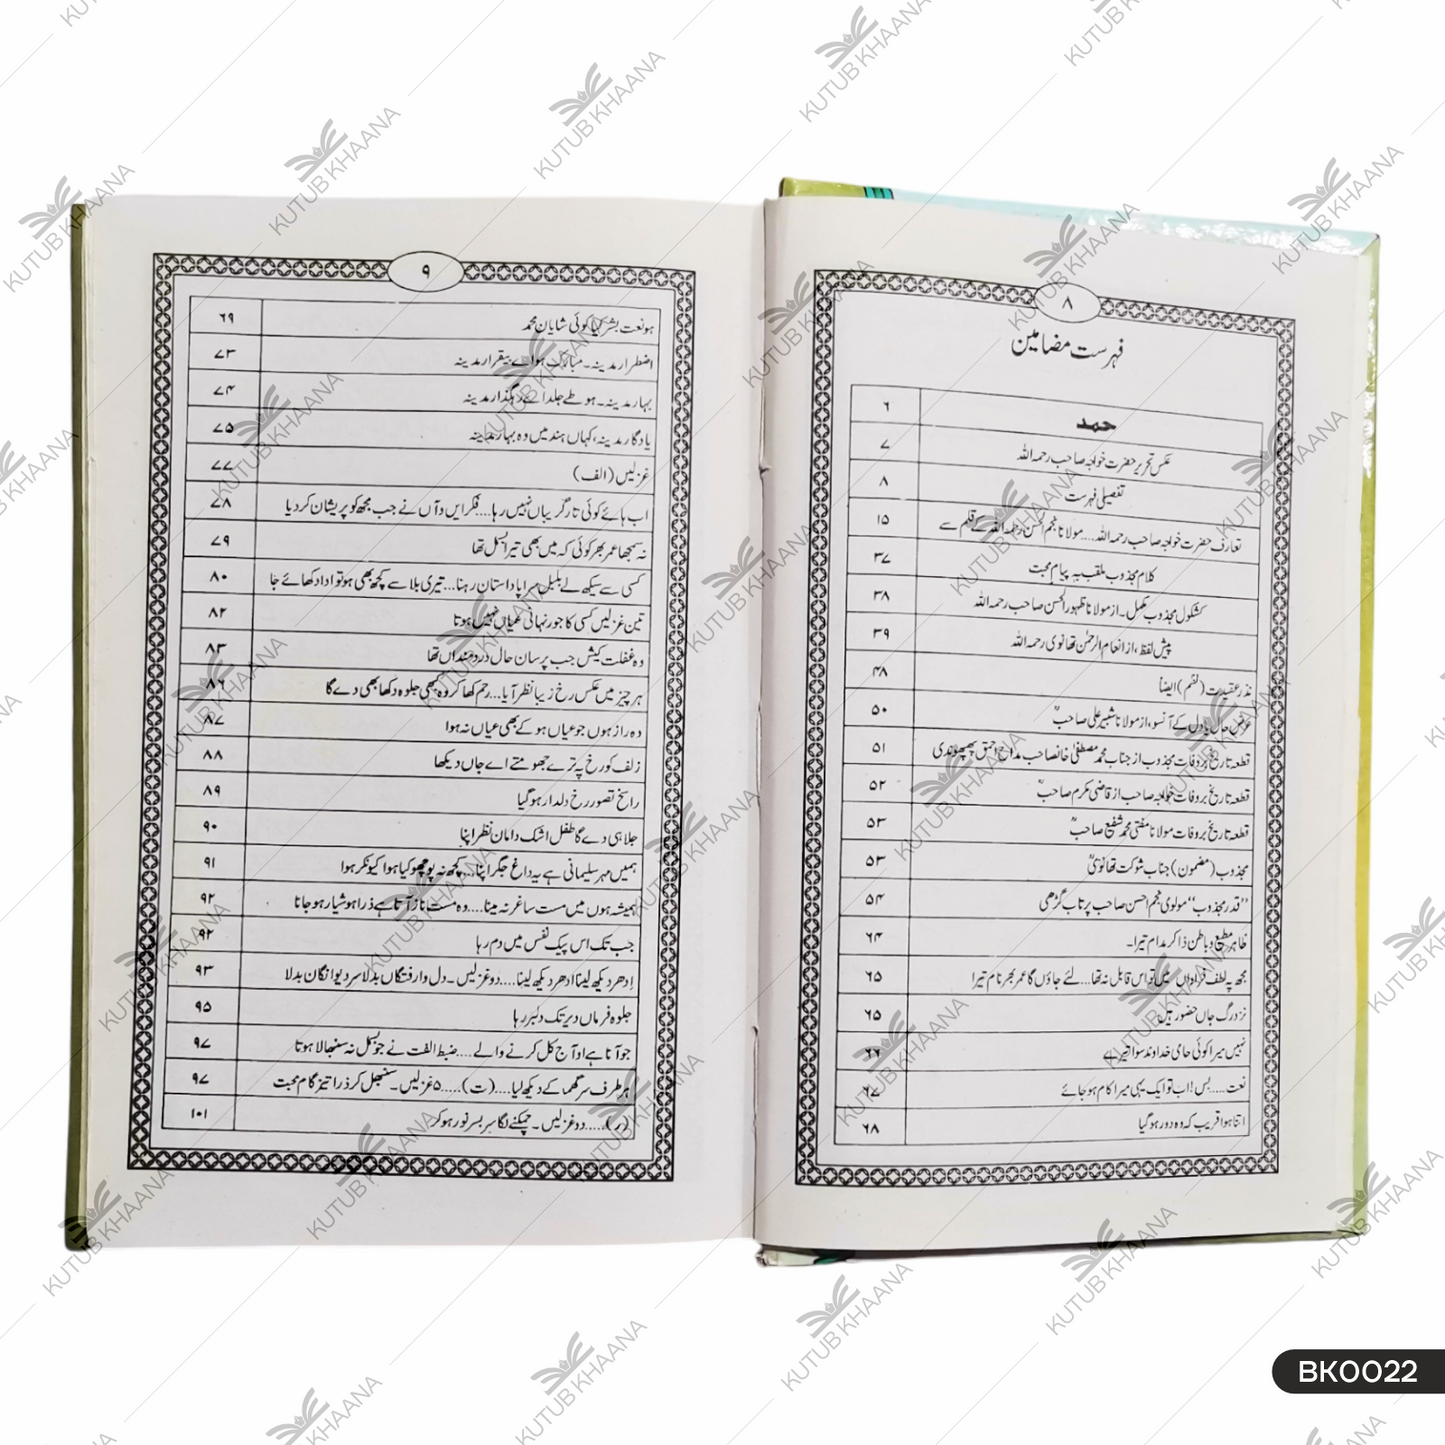 ۸
فہرست مضامین
حمد ۶
عکس تحریر حضرت خواجہ صاحب رحمہ اللہ ۷
تفصیلی فہرست ۸
تعارف حضرت خواجہ صاحب رحمہ اللہ....مولانا نجم احسن رحمہ اللہ کے قلم سے ۱۵
کلام مجذوب ملقب بہ پیام محبت ۳۷
کشکول مجذوب مکمل۔ازمولانا ظہور الحسن صاحب رحمہ اللہ ۳۸
پیش لفظ، از انعام الرحمٰن تھانوی رحمہ اللہ ۳۹
نذر عقیدت (نظم) ایضاً ۴۸
عرض حال یا دل کے آنسو، از مولانا شبیر علی صاحبؒ ۵۰
قطعہ تاریخ بر وفات مجذوب از جناب محمد مصطفیٰ خانصاحب مداح احمق پھپھوندی ۵۱
قطعہ تاریخ بر وفات خواجہ صاحب از قاضی مکرم صاحبؒ ۵۲
قطعہ تاریخ بر وفات مولانا مفتی محمد شفیع صاحبؒ ۵۳
مجذوب (مضمون) جناب شوکت تھانویؒ ۵۳
”قدر مجذوب“ مولوی نجم احسن صاحب پرتاب گڑھی ۵۴
ظاہر مطیع و باطن ذاکر مدام تیرا۔ ۶۴
مجھ پہ لطف فراواں میں تو اس قابل نہ تھا....لئے جاؤں گا عمر بھر نام تیرا ۶۵
نزد رگ جاں حضور ہیں ۶۵
نہیں میرا کوئی حامی خداوند سوا تیرے ۶۶
نعت.....بس! اب تو ایک یہی میرا کام ہو جائے ۶۷
اتنا ہوا قریب کہ وہ دور ہو گیا ۶۸
۹
ہو نعت بشر کیا کوئی شایان محمد ۶۹
اضطرار مدینہ۔مبارک ہو اے بیقرار مدینہ ۷۳
بہار مدینہ۔ہو طے جلد اے رہگذار مدینہ ۷۴
یادگار مدینہ، کہاں ہند میں وہ بہار مدینہ ۷۵
غزلیں (الف) ۷۷
اب ہائے کوئی تار گریباں نہیں رہا....فکر ایں و آں نے جب مجھ کو پریشان کر دیا ۷۸
نہ سمجھا عمر بھر کوئی کہ میں بھی تیرا بسمل تھا ۷۹
کسی سے سیکھ لے بلبل سراپا داستان رہنا....تیری بلا سے کچھ بھی ہو تو ادا دکھائے جا ۸۰
تین غزلیں کسی کا جور نہانی عیاں نہیں ہوتا ۸۲
وہ غفلت کیش جب پرسان حال دردمنداں تھا ۸۳
ہر چیز میں عکس رخ زیبا نظر آیا....رحم کھا کر وہ کبھی جلوہ دکھا بھی دے گا ۸۶
وہ راز ہوں جو عیاں ہو کے بھی عیاں نہ ہوا ۸۷
زلف کو رخ پہ ترے جھومتے اے جاں دیکھا ۸۸
راسخ تصور رخ دلدار ہو گیا ۸۹
جلا ہی دے گا طفل اشک دامان نظر اپنا ۹۰
ہمیں مہر سلیمانی ہے یہ داغ جگر اپنا....کچھ نہ پوچھو کیا ہوا کیونکر ہوا ۹۱
ہمیشہ ہوں میں مست ساغر نہ مینا....وہ مست ناز آتا ہے ذرا ہوشیار ہو جانا ۹۲
جب تک اس پیک نفس میں دم رہا ۹۲
اِدھر دیکھ لینا اُدھر دیکھ لینا....دو غزلیں۔دل وارفتگاں بدلا سر دیوانگان بدلا ۹۳
جلوہ فرماں دیر تک دلبر رہا ۹۵
جو آتا ہے او آج کل کرنے والے....ضبط الفت نے جو بسمل نہ سنبھالا ہوتا ۹۷
ہر طرف سر گھما کے دیکھ لیا....(ت)....۵ غزلیں۔سنبھل کر ذرا تیز گام محبت ۹۷
(ر).....دو غزلیں۔چمکنے لگا سر بسر نور ہو کر ۱۰۱
KUTUB KHAANA
BK0022